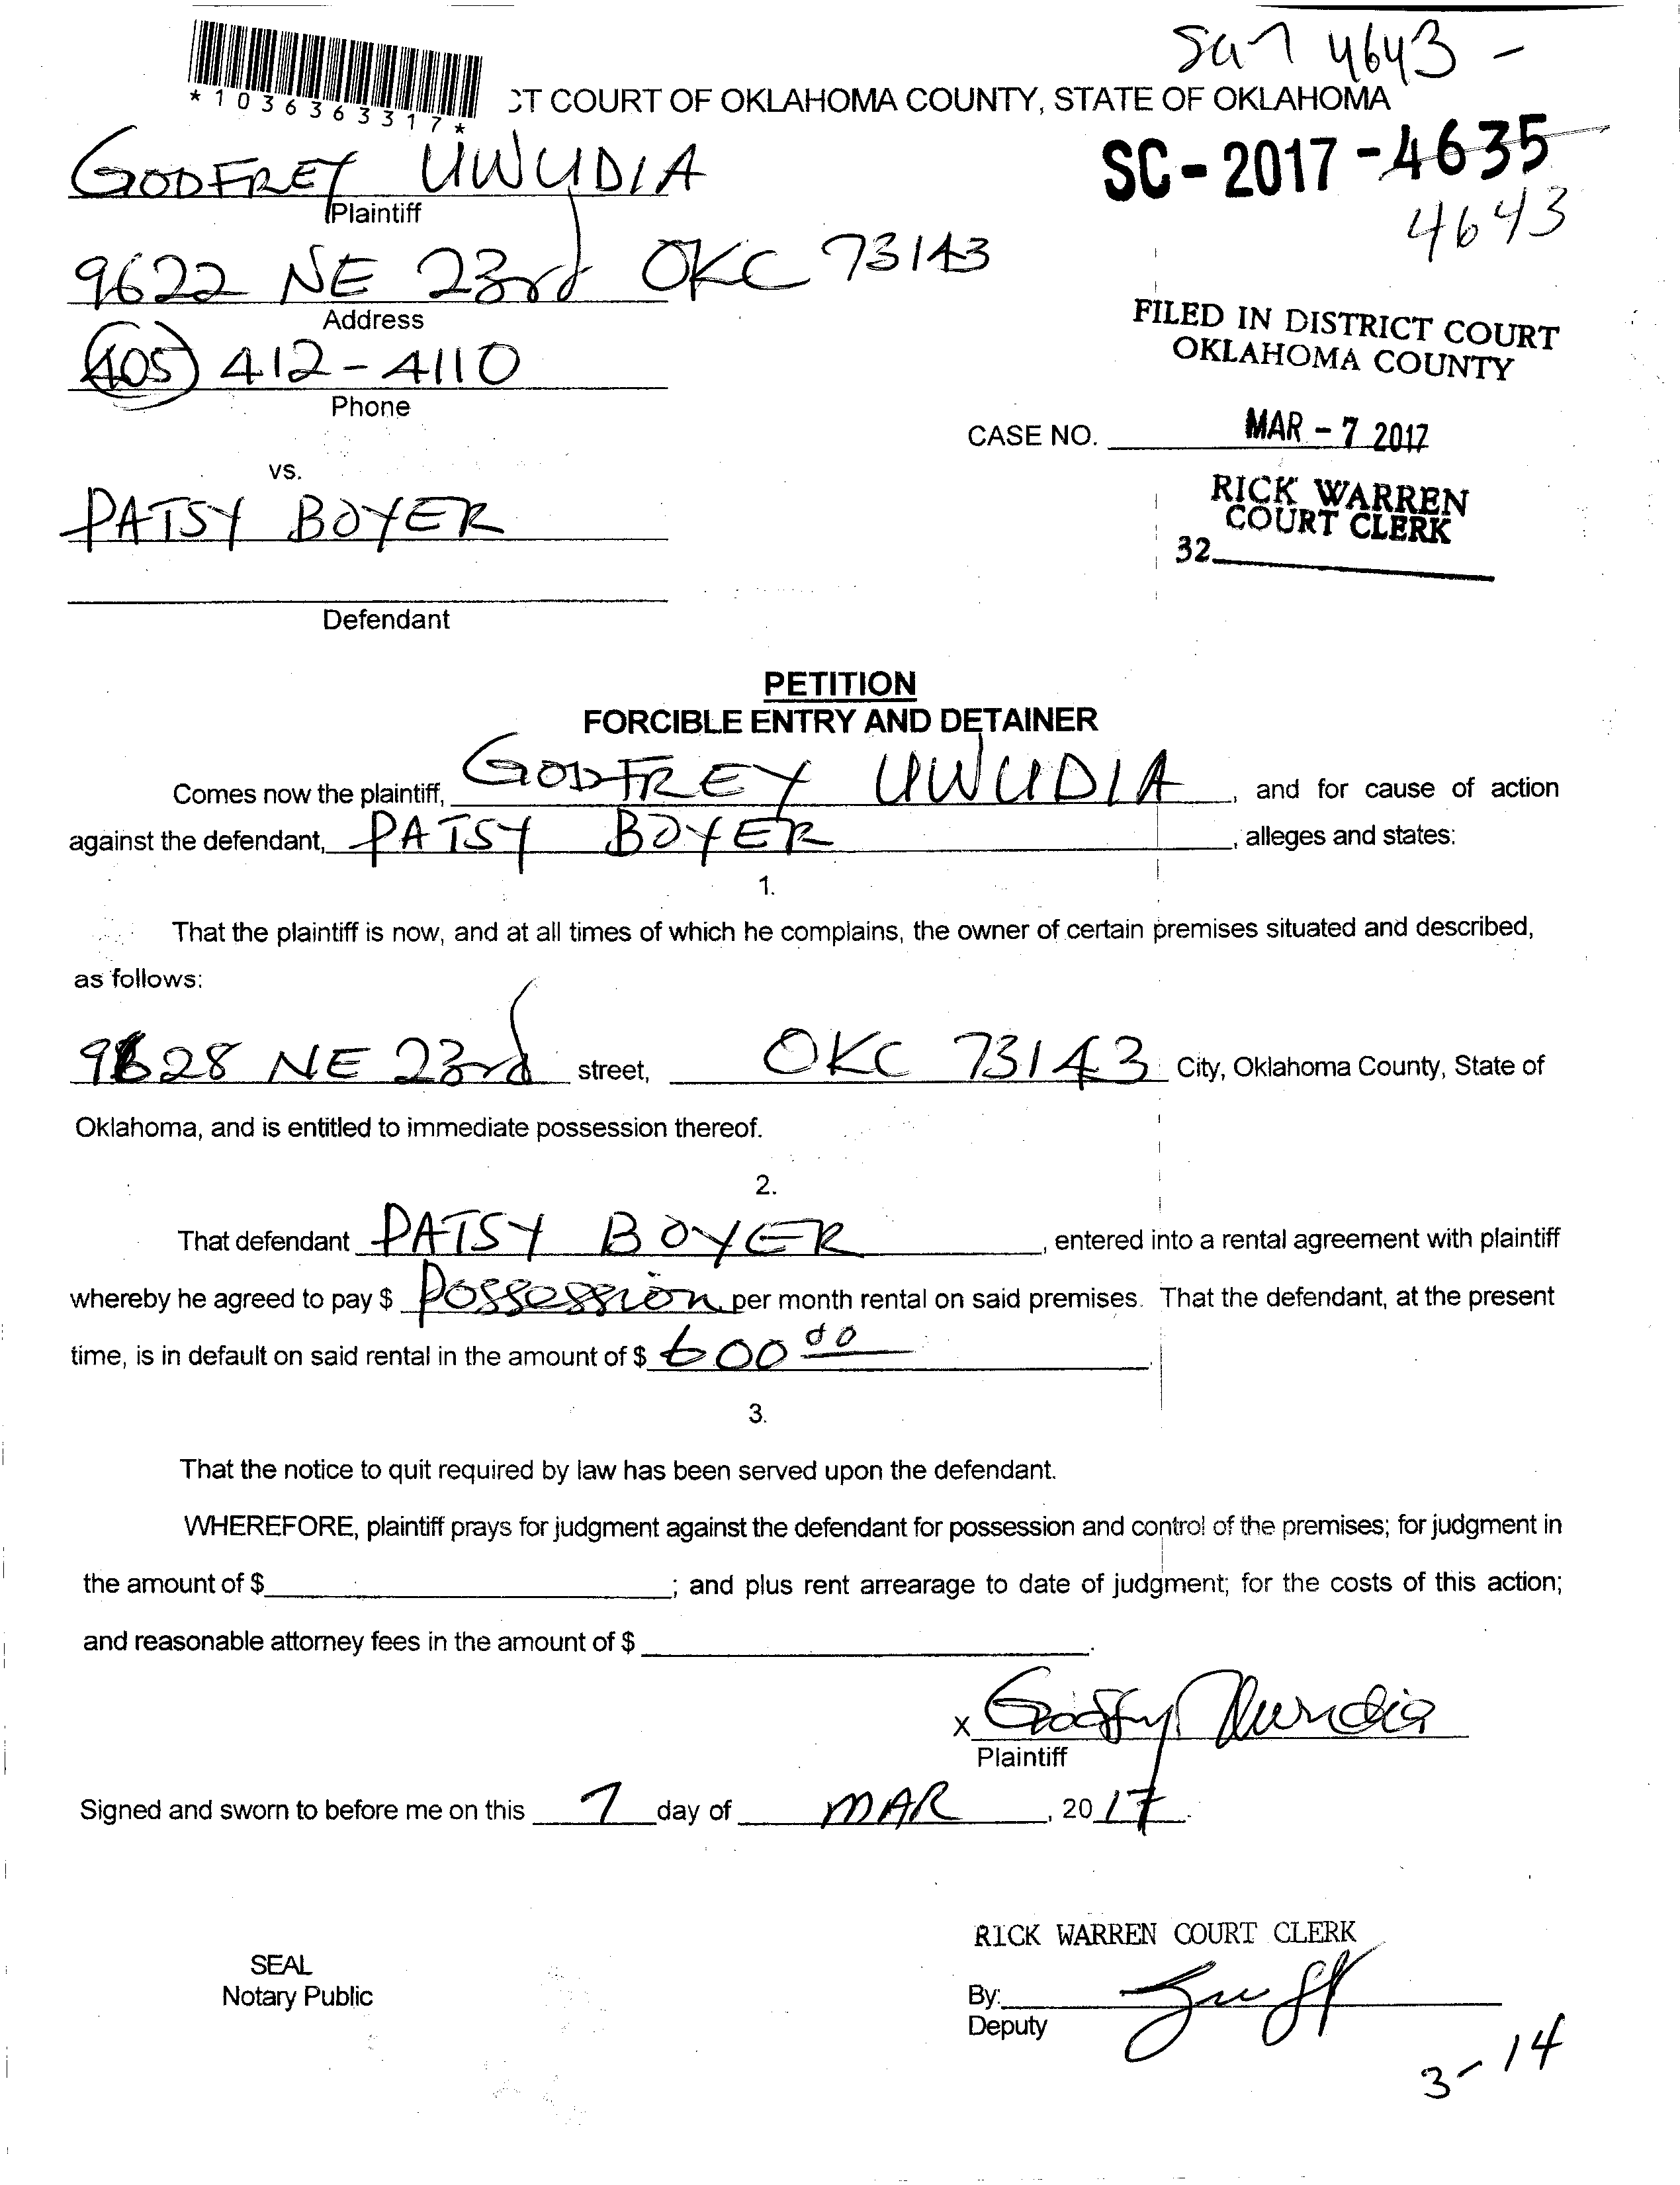 SC17 4643 -
*1036363317*
CT COURT OF OKLAHOMA COUNTY, STATE OF OKLAHOMA
GODFREY UWUDIA
Plaintiff
SC-2017-4635
4643
9622 NE 23rd OKC 73143
Address
FILED IN DISTRICT COURT
OKLAHOMA COUNTY
(405) 412-4110
Phone
CASE NO.
MAR - 7 2017
vs.
RICK WARREN
COURT CLERK
32
PATSY BOYER
Defendant
PETITION
FORCIBLE ENTRY AND DETAINER
Comes now the plaintiff, GODFREY UWUDIA, and for cause of action
against the defendant, PATSY BOYER, alleges and states:
1.
That the plaintiff is now, and at all times of which he complains, the owner of certain premises situated and described,
as follows:
9628 NE 23rd street, OKC 73143 City, Oklahoma County, State of
Oklahoma, and is entitled to immediate possession thereof.
2.
That defendant PATSY BOYER, entered into a rental agreement with plaintiff
whereby he agreed to pay $ Possession per month rental on said premises. That the defendant, at the present
time, is in default on said rental in the amount of $ 600 00.
3.
That the notice to quit required by law has been served upon the defendant.
WHEREFORE, plaintiff prays for judgment against the defendant for possession and control of the premises; for judgment in
the amount of $ ; and plus rent arrearage to date of judgment; for the costs of this action;
and reasonable attorney fees in the amount of $ .
X Godfrey Uwudia
Plaintiff
Signed and sworn to before me on this 7 day of MAR, 2017.
RICK WARREN COURT CLERK
SEAL
Notary Public
By:
Deputy
3-14